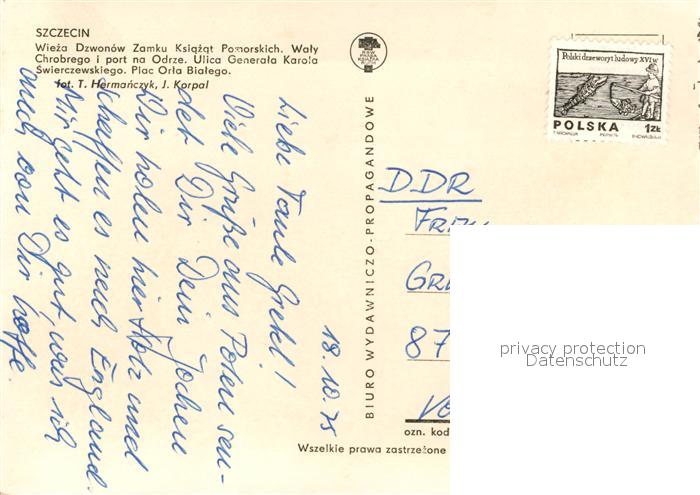 SZCZECIN
Wieża Dzwonów Zamku Książąt Pomorskich. Wały
Chrobrego i port na Odrze. Ulica Generała Karola
Świerczewskiego. Plac Orła Białego.
fot. T. Hermańczyk, J. Korpal
18.10.75
Liebe Tante Gretel!
Viele Grüße aus Polen sen-
det Dir Dein Jochen
Wir holen hier Holz und
schaffen es nach England.
Mir geht es gut, was ich
auch von Dir hoffe.
BIURO WYDAWNICZO-PROPAGANDOWE
Polski drzeworyt ludowy XVI w
POLSKA 1ZŁ
DDR
87
privacy protection
Datenschutz
ozn. kod
Wszelkie prawa zastrzeżone